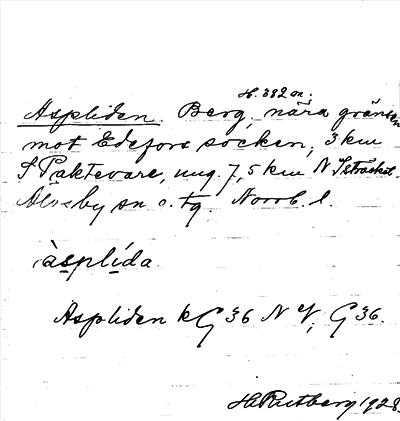 H. 382 m.
Aspliden. Berg, nära gränsen
mot Edefors socken, 3 km
S Paktevare, ung. 7,5 km N Isträsket.
Älvsby sn o. tg. Norrb. l.
àsplída
Aspliden kG 36 N V, G 36.
H. Rutberg 1928.